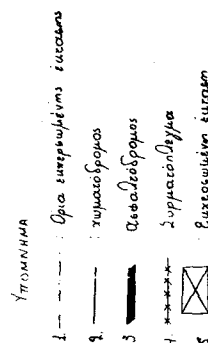 ΥΠΟΜΝΗΜΑ
1. : Όρια εκχερσωμένης έκτασης
2. : χωματόδρομος
3 : ασφαλτόδρομος
4. : Συρματόπλεγμα
5 : Εκχερσωμένη έκταση